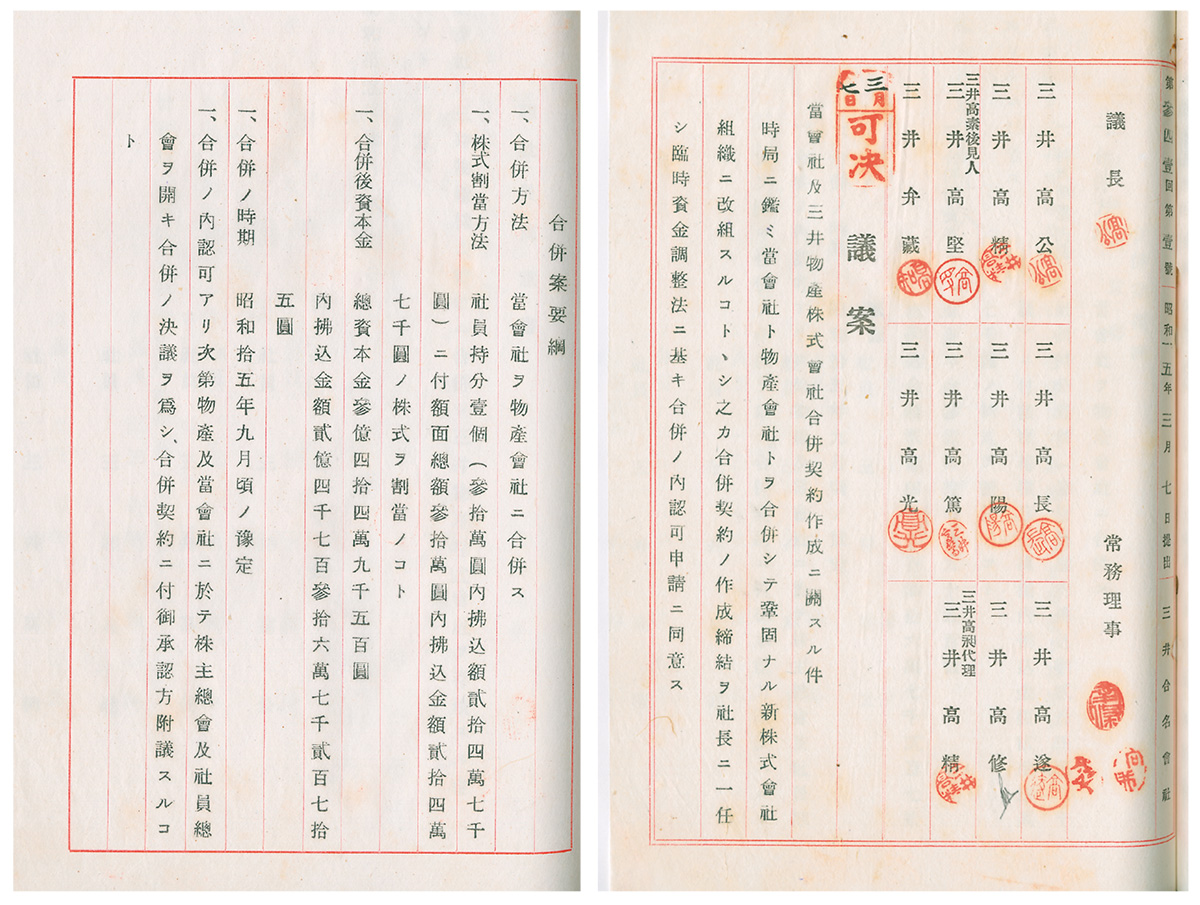 第參四壹回第壹號 昭和一五年三月七日提出 三井合名會社
議長
常務理事
三井高公
三井高長
三井高遂
三井高精
三井高陽
三井高修
三井高素後見人
三井高堅
三井高篤
三井高昶代理
三井高精
三井弁藏
三井高光
三月
七日
可決
議案
當會社及三井物產株式會社合併契約作成ニ關スル件
時局ニ鑑ミ當會社ト物產會社トヲ合併シテ鞏固ナル新株式會社
組織ニ改組スルコトヽシ之カ合併契約ノ作成締結ヲ社長ニ一任
シ臨時資金調整法ニ基キ合併ノ內認可申請ニ同意ス
合併案要綱
一、合併方法 當會社ヲ物產會社ニ合併ス
一、株式割當方法 社員持分壹個(參拾萬圓內拂込額貳拾四萬七千
圓)ニ付額面總額參拾萬圓內拂込金額貳拾四萬
七千圓ノ株式ヲ割當ノコト
一、合併後資本金 總資本金參億四拾四萬九千五百圓
內拂込金額貳億四千七百參拾六萬七千貳百七拾
五圓
一、合併ノ時期 昭和拾五年九月頃ノ豫定
一、合併ノ內認可アリ次第物產及當會社ニ於テ株主總會及社員總
會ヲ開キ合併ノ決議ヲ爲シ、合併契約ニ付御承認方附議スルコ
ト